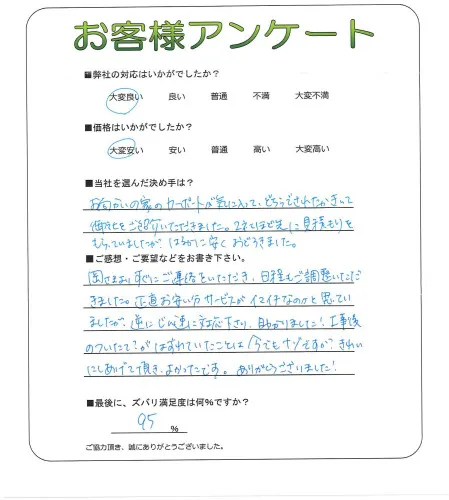 お客様アンケート
■弊社の対応はいかがでしたか?
大変良い 良い 普通 不満 大変不満
■価格はいかがでしたか?
大変安い 安い 普通 高い 大変高い
■当社を選んだ決め手は?
お向かいの家のカーポートが気に入って、どちらでされたかきって
御社をご紹介いただきました。2社ほど先に見積もりを
もらっていましたが、はるかに安くおどろきました。
■ご感想・ご要望などをお書き下さい。
岡さまよりすぐにご連絡をいただき、日程もご調整いただ
きました。正直お安い分サービスがイマイチなのかと思ってい
ましたが、逆にじん速に対応下さり、助かりました!工事後
のついたて?がはずれていたことは今でもナゾですが、きれい
にしあげて頂き、よかったです。ありがとうございました!
■最後に、ズバリ満足度は何%ですか?
95 %
ご協力頂き、誠にありがとうございました。